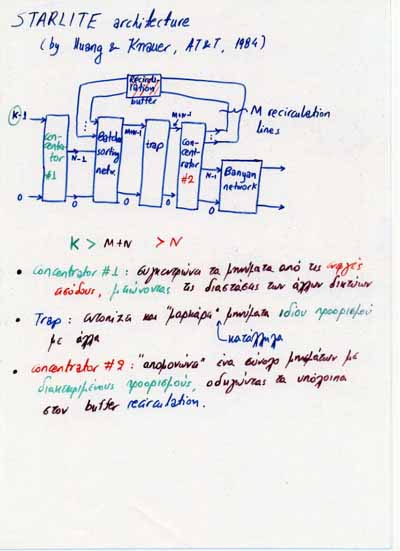 STARLITE architecture
(by Huang & Knauer, AT&T, 1984)
Recirculation
buffer
M recirculation
lines
K-1
M+N-1
M+N-1
Concentrator
#1
N-1
Batcher
sorting
netw.
trap
concentrator
#2
N-1
Banyan
network
0
0
0
0
0
K > M+N > N
• concentrator #1 : συγκεντρώνει τα μηνύματα από τις αργές
εισόδους, μειώνοντας τις διαστάσεις των άλλων δικτύων
• Trap : εντοπίζει και "μαρκάρει" μηνύματα ιδίου προορισμού
με άλλα
κατάλληλα
• concentrator #2 : "απομονώνει" ένα σύνολο μηνυμάτων με
διακεκριμένους προορισμούς, οδηγώντας τα υπόλοιπα
στον buffer recirculation.